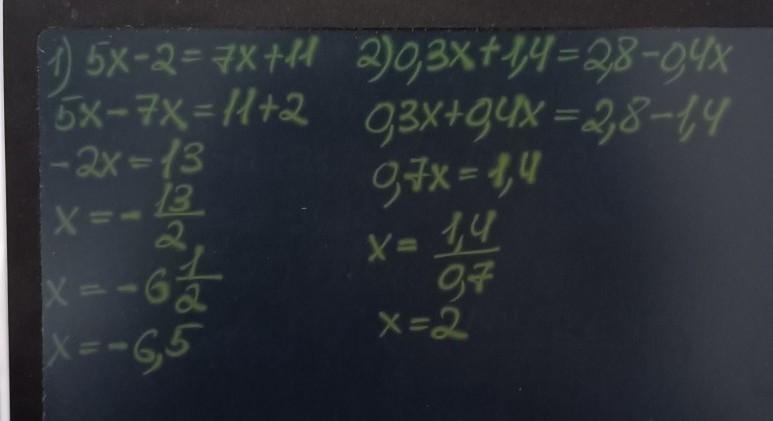 1) 5x-2=7x+11
5x-7x=11+2
-2x=13
x=-13/2
x=-6 1/2
x=-6,5
2) 0,3x+1,4=2,8-0,4x
0,3x+0,4x=2,8-1,4
0,7x=1,4
x=1,4/0,7
x=2